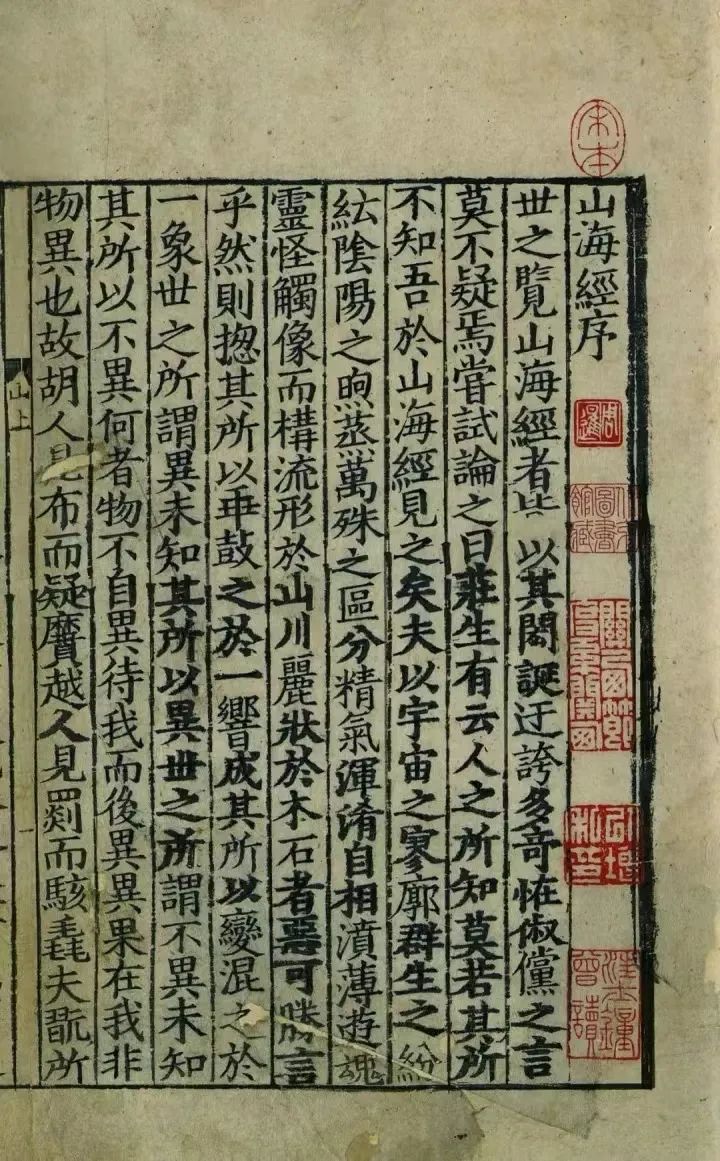 宋本
山海經序
周暹
北京圖書館藏
汪士鐘曾讀
世之覽山海經者皆以其閎誕迂誇多奇怪俶儻之言
莫不疑焉嘗試論之曰莊生有云人之所知莫若其所
不知吾於山海經見之矣夫以宇宙之寥廓群生之紛
紜陰陽之煦蒸萬殊之區分精氣渾淆自相濆薄遊魂
靈怪觸像而構流形於山川麗狀於木石者惡可勝言
乎然則揔其所以乖鼓之於一響成其所以變混之於
一象世之所謂異未知其所以異世之所謂不異未知
其所以不異何者物不自異待我而後異異果在我非
物異也故胡人見布而疑黂越人見罽而駭毳夫翫所
山上